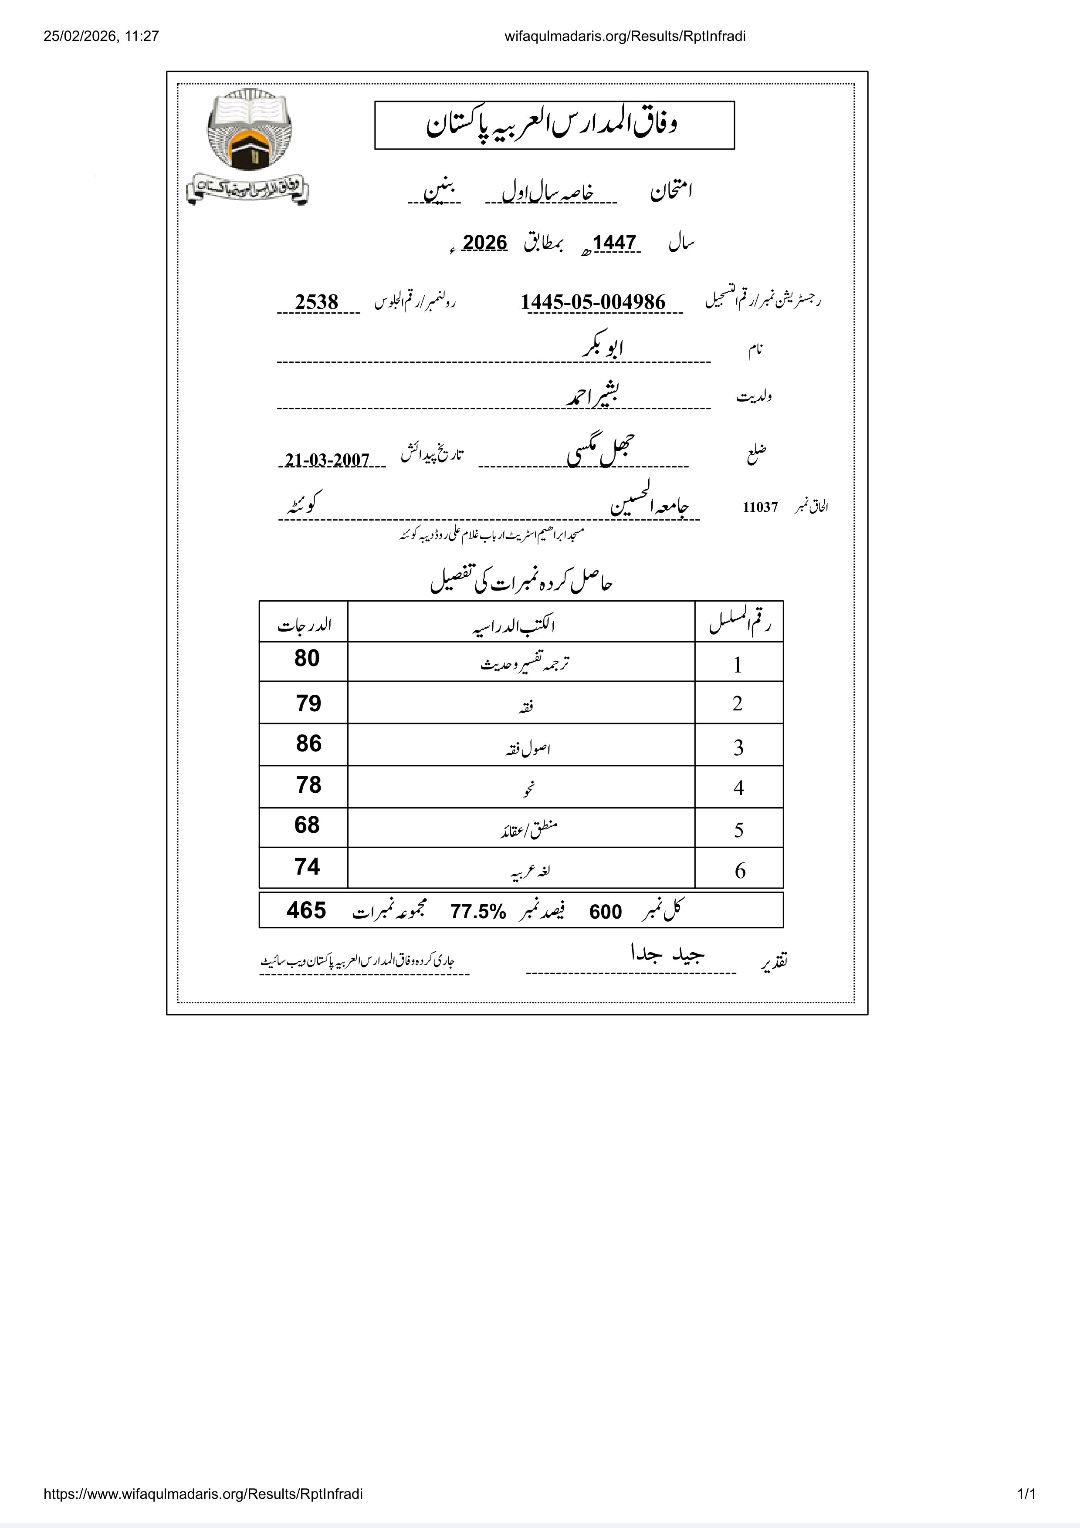 25/02/2026, 11:27 wifaqulmadaris.org/Results/RptInfradi
وفاق المدارس العربیہ پاکستان
وفاق المدارس العربیہ پاکستان
امتحان خاصہ سال اول بنین
سال 1447ھ بمطابق 2026ء
رجسٹریشن نمبر/رقم التسجیل 1445-05-004986 رولنمبر/رقم الجلوس 2538
نام ابو بکر
ولدیت بشیر احمد
ضلع جھل مگسی تاریخ پیدائش 21-03-2007
الحاق نمبر 11037 جامعہ الحسین کوئٹہ
مسجد ابراھیم اسٹریٹ ارباب غلام علی روڈ دیبہ کوئٹہ
حاصل کردہ نمبرات کی تفصیل
رقم المسلسل الکتب الدراسیہ الدرجات
1 ترجمہ تفسیر و حدیث 80
2 فقہ 79
3 اصول فقہ 86
4 نحو 78
5 منطق/عقائد 68
6 لغہ عربیہ 74
کل نمبر 600 فیصد نمبر 77.5% مجموعہ نمبرات 465
تقدیر جید جدا جاری کردہ وفاق المدارس العربیہ پاکستان ویب سائیٹ
https://www.wifaqulmadaris.org/Results/RptInfradi 1/1